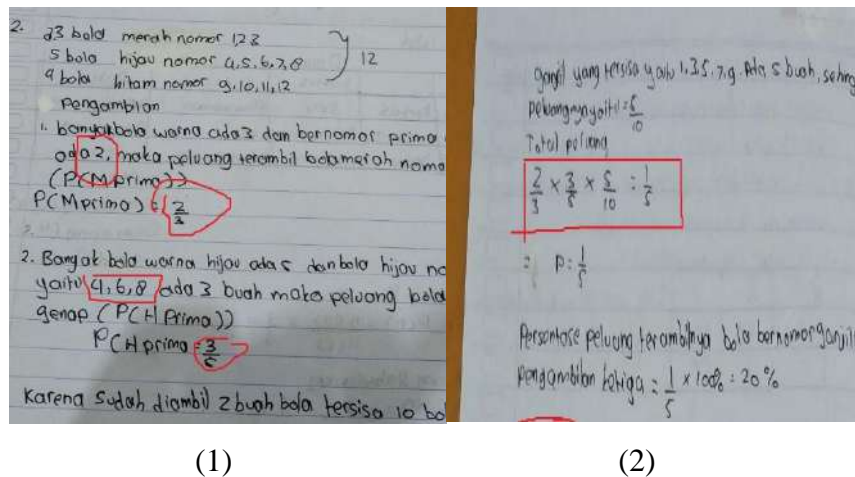 2. 23 bola merah nomor 1,2,3
5 bola hijau nomor 4,5,6,7,8
4 bola hitam nomor 9,10,11,12
} 12
Pengambilan
1. banyak bola warna ada 3 dan bernomor prima
ada 2, maka peluang terambil bola merah nomo
(P(M prima))
P(M prima) = 2/3
2. Banyak bola warna hijau ada 5 dan bola hijau no
yaitu 4,6,8 ada 3 buah maka peluang bola
genap (P(H Prima))
P(H prima = 3/5
Karena Sudah diambil 2 buah bola tersisa 10 bo
(1)
ganjil yang tersisa yaitu 1,3,5,7,9. Ada 5 buah, sehing
peluangnya yaitu = 5/10
Total peluang
2/3 x 3/5 x 5/10 = 1/5
= P = 1/5
Persentase peluang terambilnya bola bernomor ganjil
Pengambilan ketiga = 1/5 x 100% = 20%
(2)